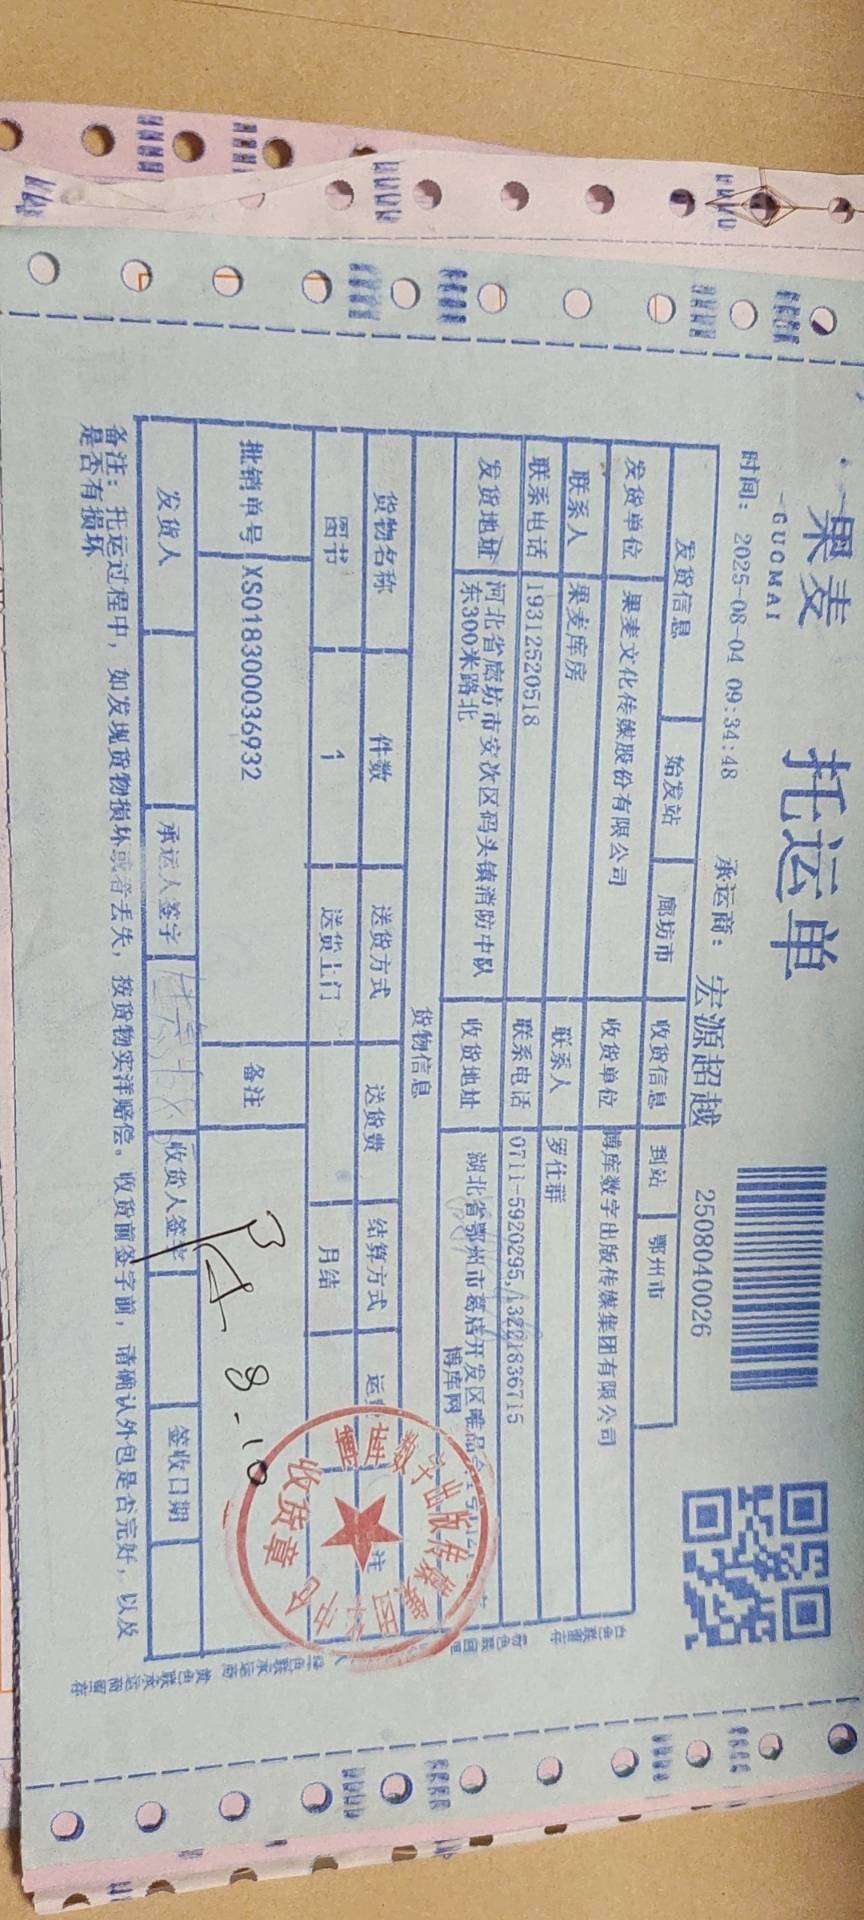 果麦
GUOMAI
托运单
时间：2025-08-04 09:34:48 承运商：宏源超越 2508040026
发货信息 始发站 廊坊市 收货信息 到站 鄂州市
发货单位 果麦文化传媒股份有限公司 收货单位 博库数字出版传媒集团有限公司
联系人 果麦库房 联系人 罗仕群
联系电话 19312520518 联系电话 0711-5920295,13221836715
发货地址 河北省廊坊市安次区码头镇消防中队东300米路北 收货地址 湖北省鄂州市葛店开发区唯品
博库网
货物信息
货物名称 件数 送货方式 送货费 结算方式 运 注
图书 1 送货上门 月结
批销单号 XS018300036932 备注
8.10
发货人 承运人签字 收货人签字 签收日期
备注：托运过程中，如发现货物损坏或者丢失，按货物实洋赔偿。收货前签字前，请确认外包是否完好，以及
是否有损坏
博库数字出版传媒集团
收货章